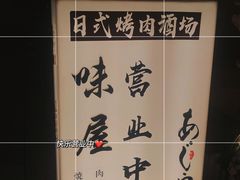 日式烤肉酒场
味屋
营业中
あじ
烧
肉
快乐营业中❤️